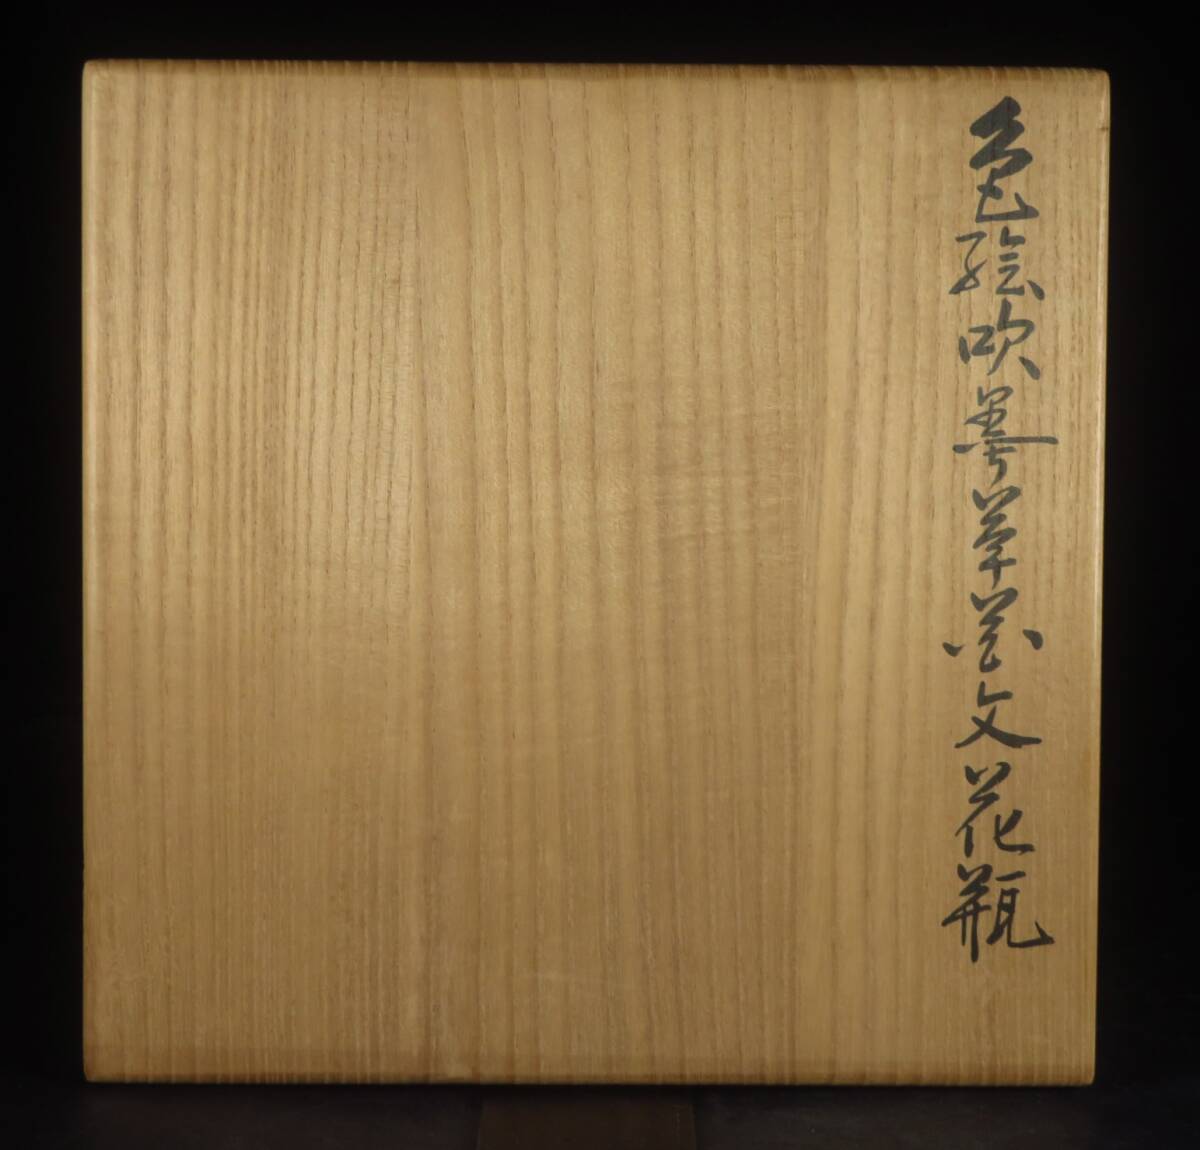 色絵吹墨草花文花瓶